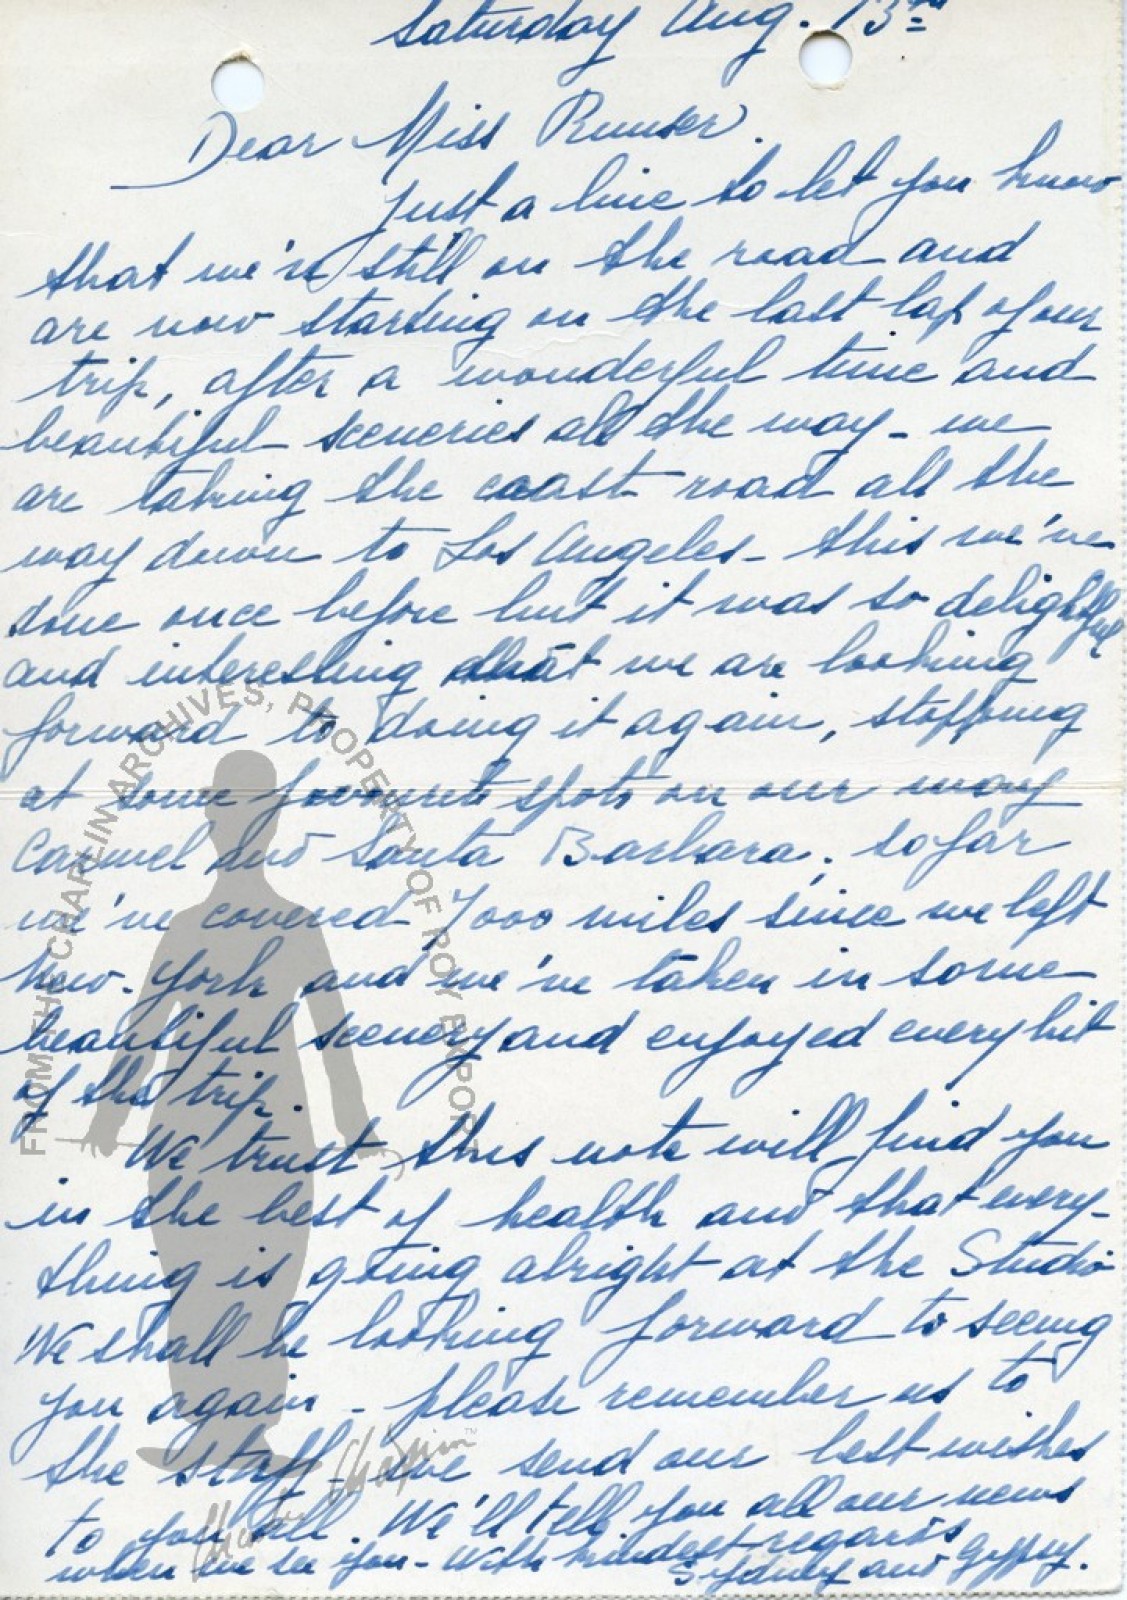 Saturday Aug. 13th
Dear Miss Runser.
Just a line to let you know
that we're still on the road and
are now starting on the last lap of our
trip, after a wonderful time and
beautiful sceneries all the way - we
are taking the coast road all the
way down to Los Angeles - this we've
done once before but it was so delightful
and interesting that we are looking
forward to doing it again, stopping
at some favourite spots on our way
Carmel and Santa Barbara. so far
we've covered 7000 miles since we left
New-York and we've taken in some
beautiful scenery and enjoyed every bit
of the trip.
We trust this note will find you
in the best of health and that every-
thing is going alright at the Studio
We shall be looking forward to seeing
you again - please remember us to
the staff - we send our best wishes
to you all. We'll tell you all our news
when we see you - With kindest regards
Sydney and Gypsy.
FROM THE CHAPLIN ARCHIVES, PROPERTY OF ROY EXPORT
Charlie Chaplin™